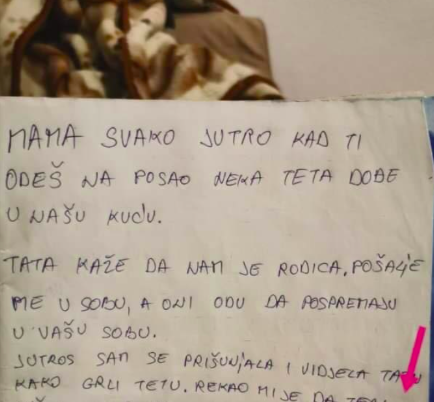 MAMA SVAKO JUTRO KAD TI
ODEŠ NA POSAO NEKA TETA DOĐE
U NAŠU KUĆU.
TATA KAŽE DA NAM JE RODICA. POŠALJE
ME U SOBU, A ONI ODU DA POSPREMAJU
U VAŠU SOBU.
JUTROS SAM SE PRIŠUNJALA I VIDJELA TATU
KAKO GRLI TETU. REKAO MI JE DA